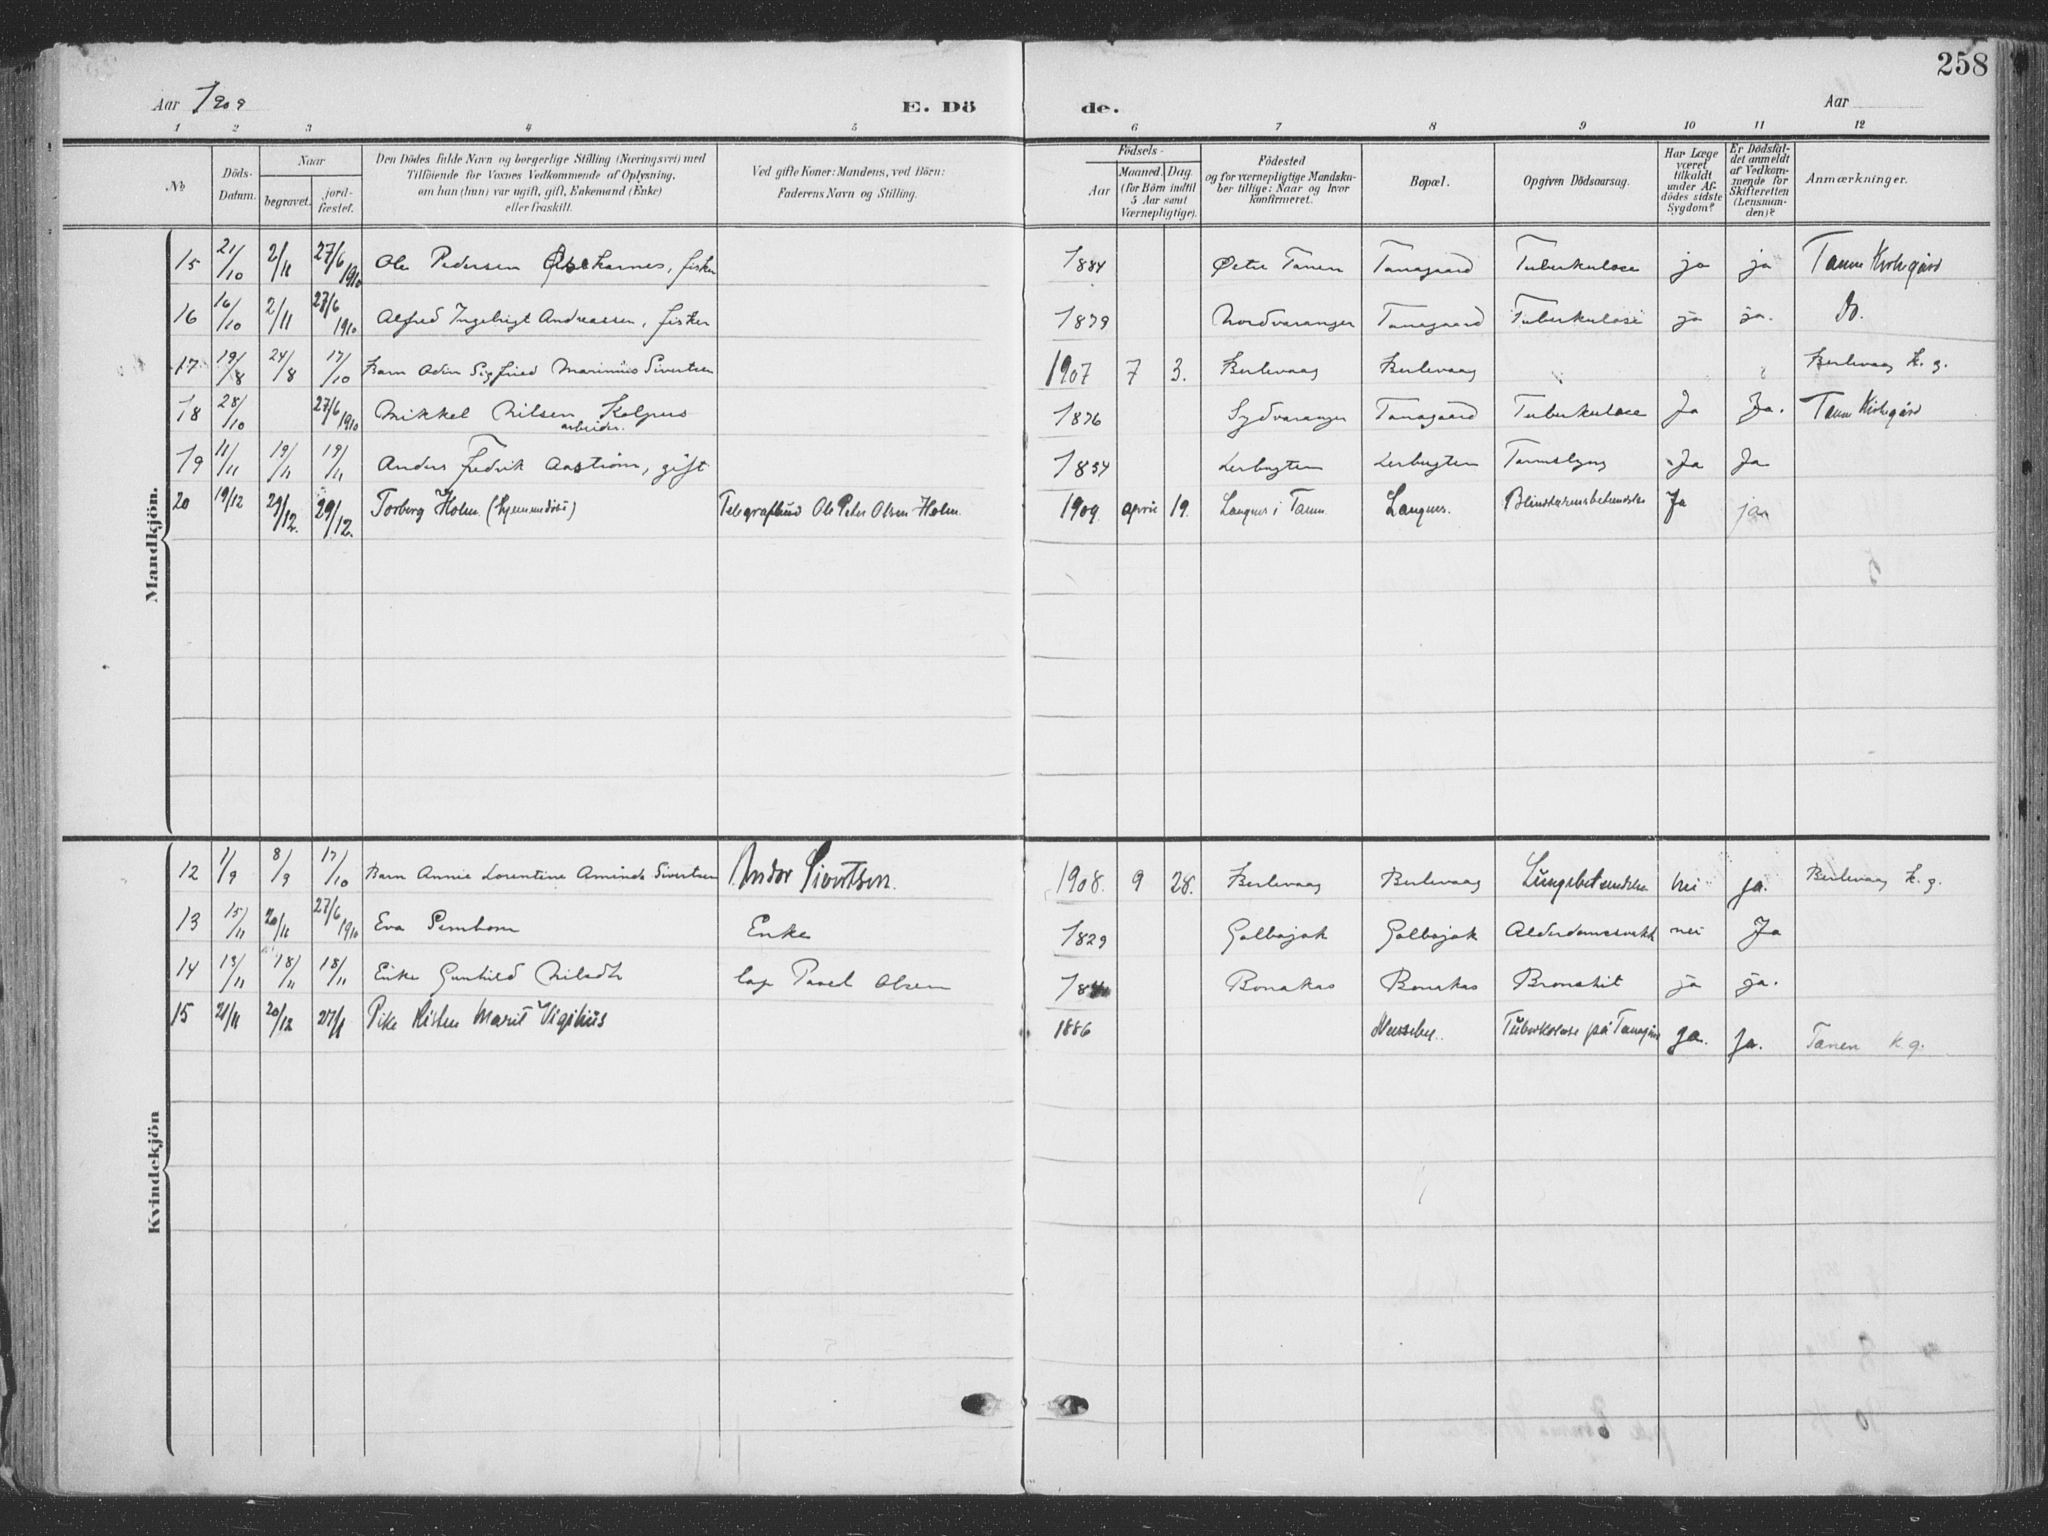 258
Aar 1909 E. Dö de. Aar
1 2 3 4 5 6 7 8 9 10 11 12
No Döds-Datum. Naar begravet. jord-fæstet. Den Dödes fulde Navn og borgerlige Stilling (Næringsvei) med Tilföiende for Voxnes Vedkommende af Oplysning, om han (hun) var ugift, gift, Enkemand (Enke) eller fraskilt. Ved gifte Koner: Mandens, ved Börn: Faderens Navn og Stilling. Födsels- Aar Maaned. Dag. (for Börn indtil 5 Aar samt Værnepligtige). Födested og for værnepligtige Mandskaber tillige: Naar og hvor konfirmeret. Bopæl. Opgiven Dödsaarsag. Har Læge været tilkaldt under Afdödes sidste Sygdom? Er Dödsfaldet anmeldt af Vedkommende for Skifteretten (Lensmanden)? Anmærkninger.
Mandkjön.
15 21/10 2/11 27/6 1910 Ole Pedersen fisker 1884 Østre Tanen Tanagaard Tuberkulose ja ja Tanen Kirkegård
16 16/10 2/11 27/6 1910 Alfred Ingebrigt Andreassen, fisker 1879 Nordvaranger Tanagaard Tuberkulose ja ja. Do.
17 19/8 24/8 17/10 Barn Odin Sigfred Marinius Sivertsen 1907 7 3. Berlevaag Berlevaag Berlevaag k. g.
18 28/10 27/6 1910 Mikkel Nilsen Kolpus arbeider. 1876 Sydvaranger Tanagaard Tuberkulose Ja Ja. Tanen Kirkegård
19 11/11 19/11 19/11 Anders Fedrik Aastrøm, gift 1854 Lerbugten Lerbugten Ja Ja
20 19/12 29/12. 29/12. Torberg Holm. (hjemmedøbt) Telegrafbud Ole Peter Olsen Holm. 1909. april 19. Langnes i Tanen. Langnes. Blindtarmsbetændelse Ja ja
Kvindekjön
12 1/9 8/9 17/10 Barn Annie Lorentine Aminda Sivertsen Andor Sivertsen. 1908. 9 28. Berlevaag Berlevaag Lungebetændelse nei ja. Berlevaag k. g.
13 15/11 20/11 27/6 1910 Eva Enke 1829 Golbajok Golbajok Alderdomssvakh nei Ja
14 13/11 18/11 18/11 Enke Gunhild Lap Poael Olsen Bonakas Bonakas Bronchit ja ja.
15 21/11 20/12 27/1 Pike Kisten Marit Vigilius 1886 Nesseby. Tuberkolose på Tanagård ja. Ja. Tanen k. g.